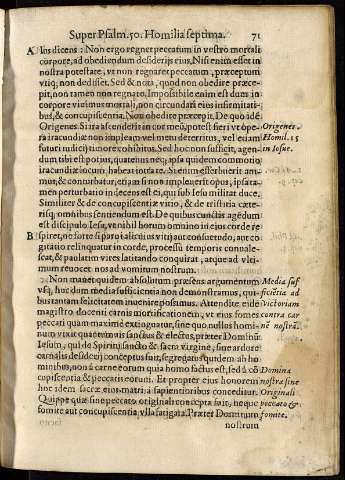 Super Psalm. 50. Homilia septima. 71
A lus dicens: Non ergo regnet peccatum in vestro mortali
corpore, ad obediendum desiderijs eius. Nisi enim esset in
nostra potestate, vt non regnaret peccatum, præceptum
vtiq; non dedisset. Sed & nota, quod non obedire præce-
pit, non tamen non regnato. Impossibile enim est dum in
corpore viuimus mortali, non circundari eius infirmitati-
bus, & concupiscentia. Non obedire præcepit. De quo idẽ
Origenes. Si ira ascenderit in cor meũ, potest fieri vt ope-
ra iracundiæ non impleã, vel metu deterritus, vel etiam
futuri iudicij timore cohibitus. Sed hoc non sufficit, agen-
dum tibi est potius, quatenus neq; ipsa quidem commotio
iracundiæ locum habeat intra te. Si enim efferbuerit ani-
mus, & conturbatur, etiam si non impleuerit opus, ipsa ta-
men perturbatio indecens est ei, qui sub Iesu militat duce.
Similiter & de concupiscentiæ vitio, & de tristitia cæte-
risq; omnibus sentiendum est. De quibus cunctis agẽdum
est discipulo Iesu, ve nihil horum omnino in eius corde re
B spiret, ne forte si paruo alicuius vitij aut consuetudo, aut co
gitatio relinquatur in corde, processu temporis conuale-
scat, & paulatim vires latitando conquirat, atque ad vlti-
mum reuocet nos ad vomitum nostrum.
Non manet quidem absolutum præsens argumentum
vsq; huc dum media sufficientia non demonstramus, qui-
bus tantam felicitatem inuenire possumus. Attendite eide
magistro docenti carnis mortificationem, vt eius fomes
peccati quam maxime extinguatur, sine quo nullus homi-
num vixit quantumuis sanctus & electus, præter Dominũ
Iesum, qui de Spiritu sancto & sacra virgine, sine ardore
carnalis desiderij conceptus fuit, segregatusquidem ab ho
minibus, non à carne eorum quia homo factus est, sed à cõ
cupiscentia & peccatis eorum. Et propter eius honorem
idem sacræ eius matri à sapientioribus conceditur.
Quippe quæ sine peccato originali concepta fuit, neque
fomite aut concupiscentia vlla satigata. Præter Dominum
nostrum
Origenes.
Homil. 15
in Iosue.
Media suf
ficiẽtia ad
victoriam
contra car
nẽ nostrã.
Domina
nostra sine
Originali
peccato &
fomite.